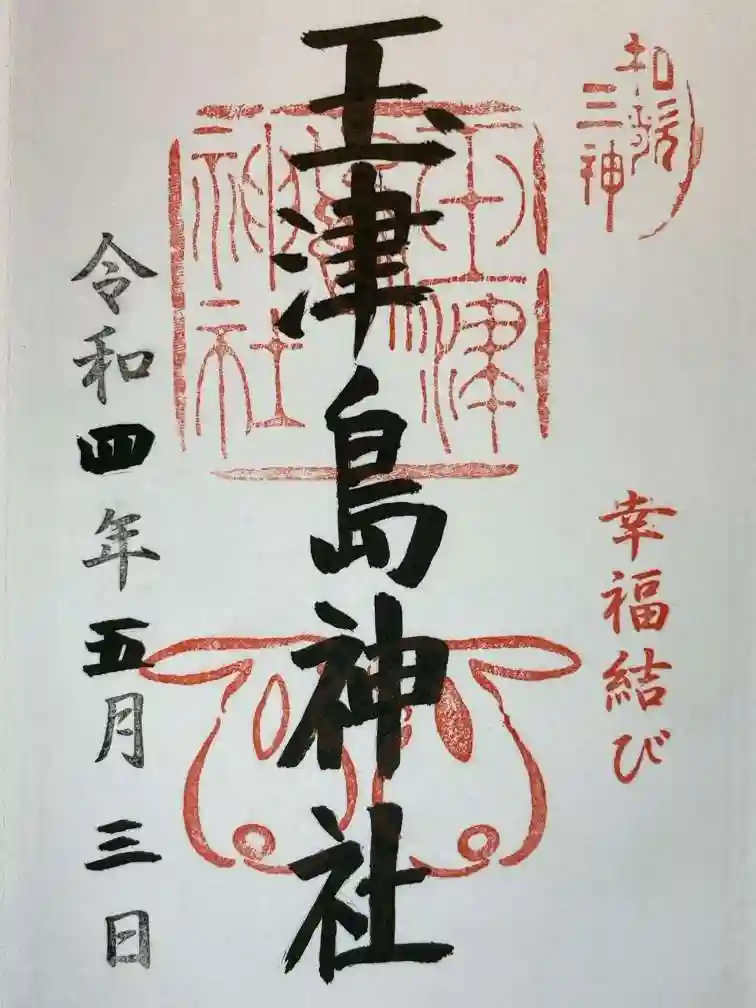 和歌
三神
幸福結び
玉津島神社
玉津
神社
令和四年五月三日